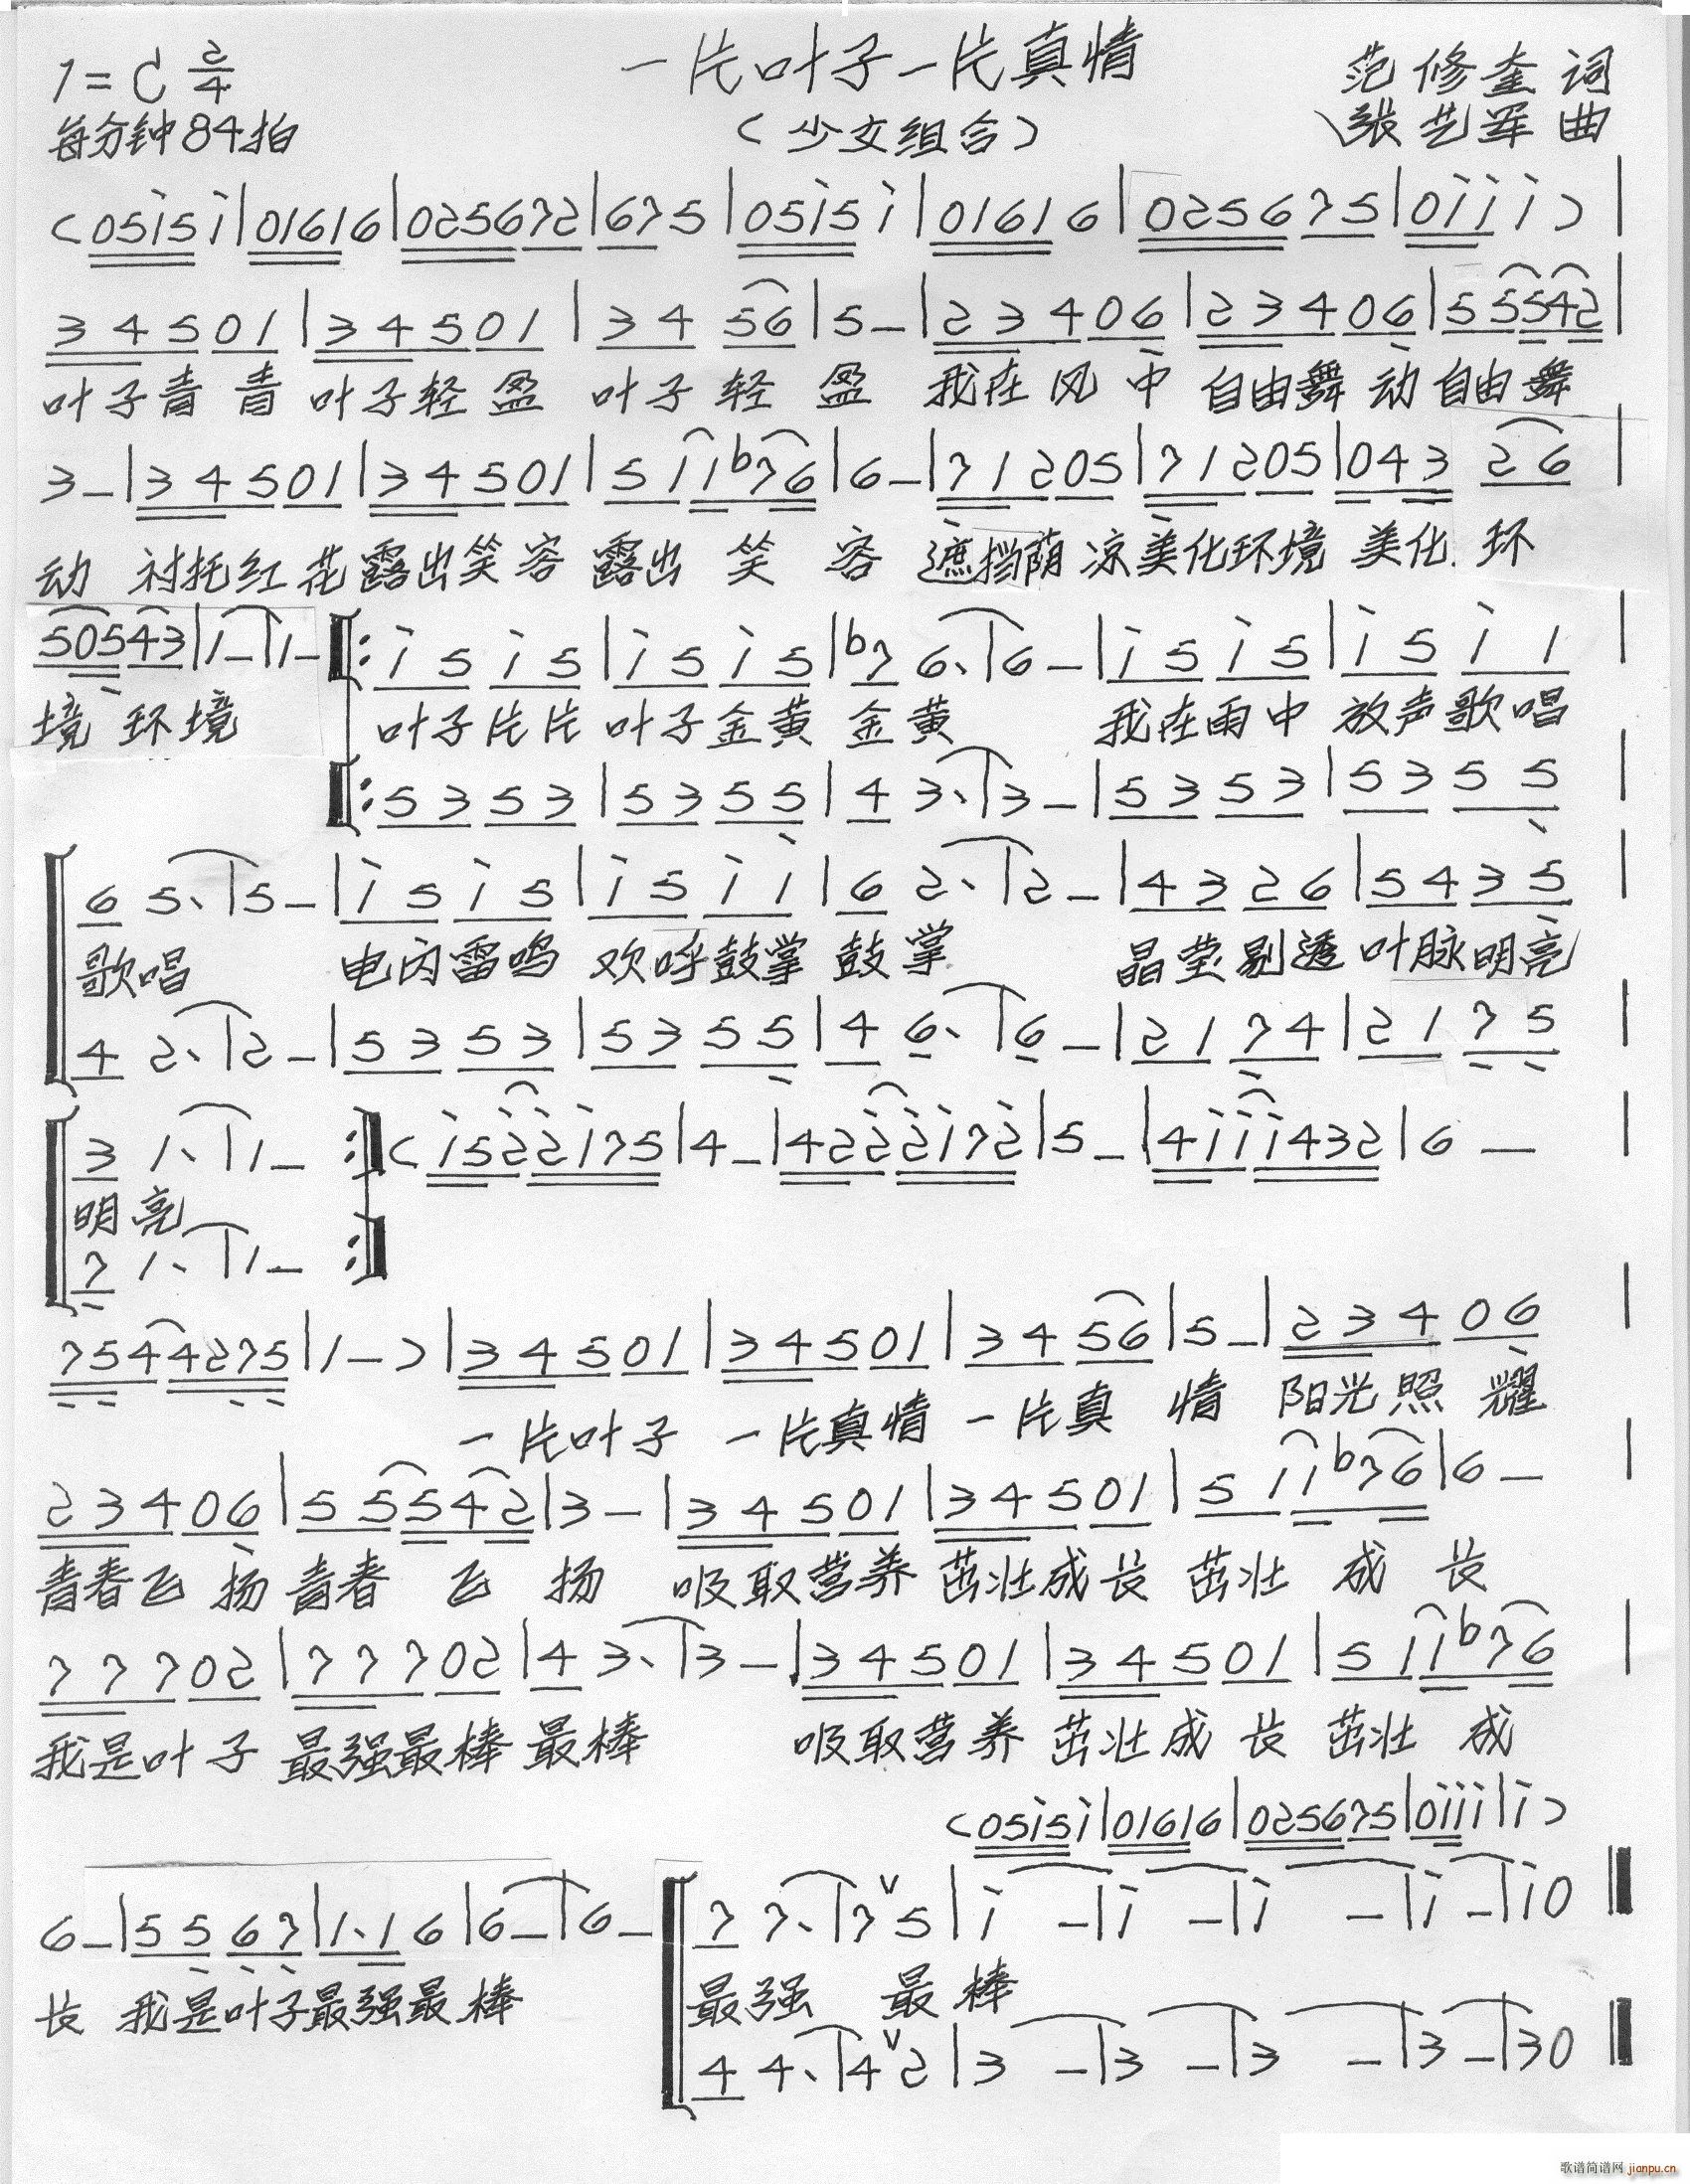 一片叶子一片真情
1=C 2/4
范修奎 词
每分钟84拍
(少文组合)
张艺军 曲
(0 5 1 5 1|0 1 6 1 6|0 2 5 6 7 2|6 7 5|0 5 1 5 1|0 1 6 1 6|0 2 5 6 7 5|0 1 1 1)|
3 4 5 0 1|3 4 5 0 1|3 4 5 6|5 –|2 3 4 0 6|2 3 4 0 6|5 5 5 4 2|
叶子青青 叶子轻盈 叶子轻盈 我在风中 自由舞动 自由舞
3 –|3 4 5 0 1|3 4 5 0 1|5 1 1 b7 6|6 –|7 1 2 0 5|7 1 2 0 5|0 4 3 2 6|
动 衬托红花 露出笑容 露出笑容 遮挡荫凉 美化环境 美化.环
5 0 5 4 3|1 –|1 –|:1 5 1 5|1 5 1 5|b7 6.|6 –|1 5 1 5|1 5 1 1|
境 环境 叶子片片 叶子金黄 金黄 我在雨中 放声歌唱
|:5 3 5 3|5 3 5 5|4 3.|3 –|5 3 5 3|5 3 5 5|
6 5.|5 –|1 5 1 5|1 5 1 1|6 2.|2 –|4 3 2 6|5 4 3 5|
歌唱 电闪雷鸣 欢呼鼓掌 鼓掌 晶莹剔透 叶脉明亮
4 2.|2 –|5 3 5 3|5 3 5 5|4 6.|6 –|2 1 7 4|2 1 7 5|
3 1.|1 – :|(1 5 2 2 1 7 5|4 –|4 2 2 2 1 7 2|5 –|4 1 1 1 4 3 2|6 –|
明亮
7 1.|1 – :|
7 5 4 4 2 7 5|1 –)|3 4 5 0 1|3 4 5 0 1|3 4 5 6|5 –|2 3 4 0 6|
一片叶子 一片真情 一片真情 阳光照耀
2 3 4 0 6|5 5 5 4 2|3 –|3 4 5 0 1|3 4 5 0 1|5 1 1 b7 6|6 –|
青春飞扬 青春飞扬 吸取营养 茁壮成长 茁壮成长
7 7 7 0 2|7 7 7 0 2|4 3.|3 –|3 4 5 0 1|3 4 5 0 1|5 1 1 b7 6|
我是叶子 最强最棒 最棒 吸取营养 茁壮成长 茁壮成
(0 5 1 5 1|0 1 6 1 6|0 2 5 6 7 5|0 1 1 1|1)
6 –|5 5 6 7|1. 1 6|6 –|6 –|7 7.|7 V 5|1 –|1 –|1 –|1 –|1 0
长 我是叶子最强最棒 最强 最棒
4 4.|4 V 2|3 –|3 –|3 –|3 –|3 0
歌谱简谱网 jianpu.cn